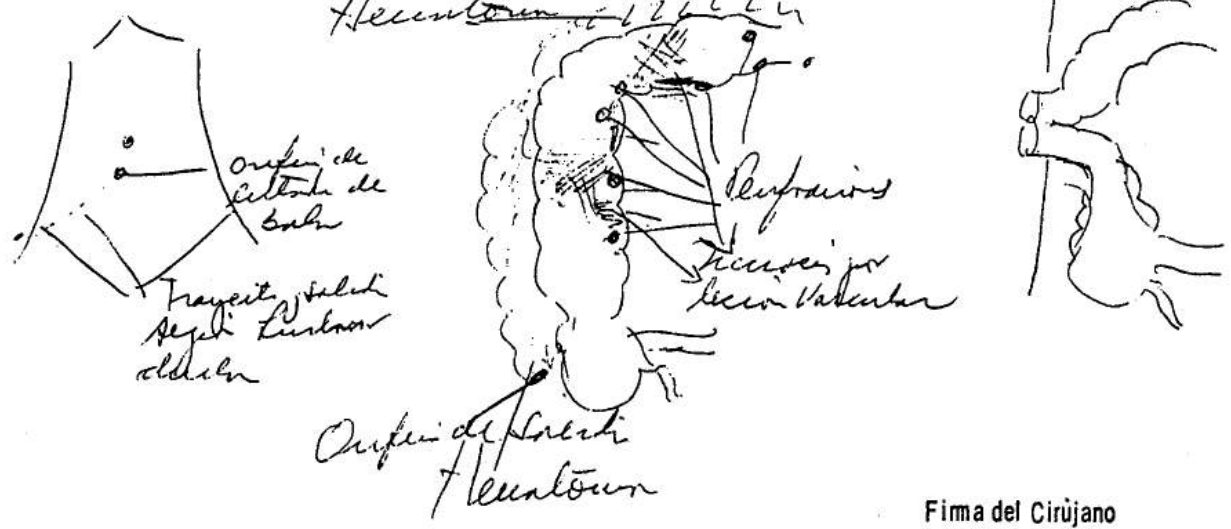 Hematoma
Orificio de
entrada de
bala
Trayecto, salida
según
Perforaciones
por
lesión Vascular
Orificio de Salida
Hematoma
Firma del Cirùjano